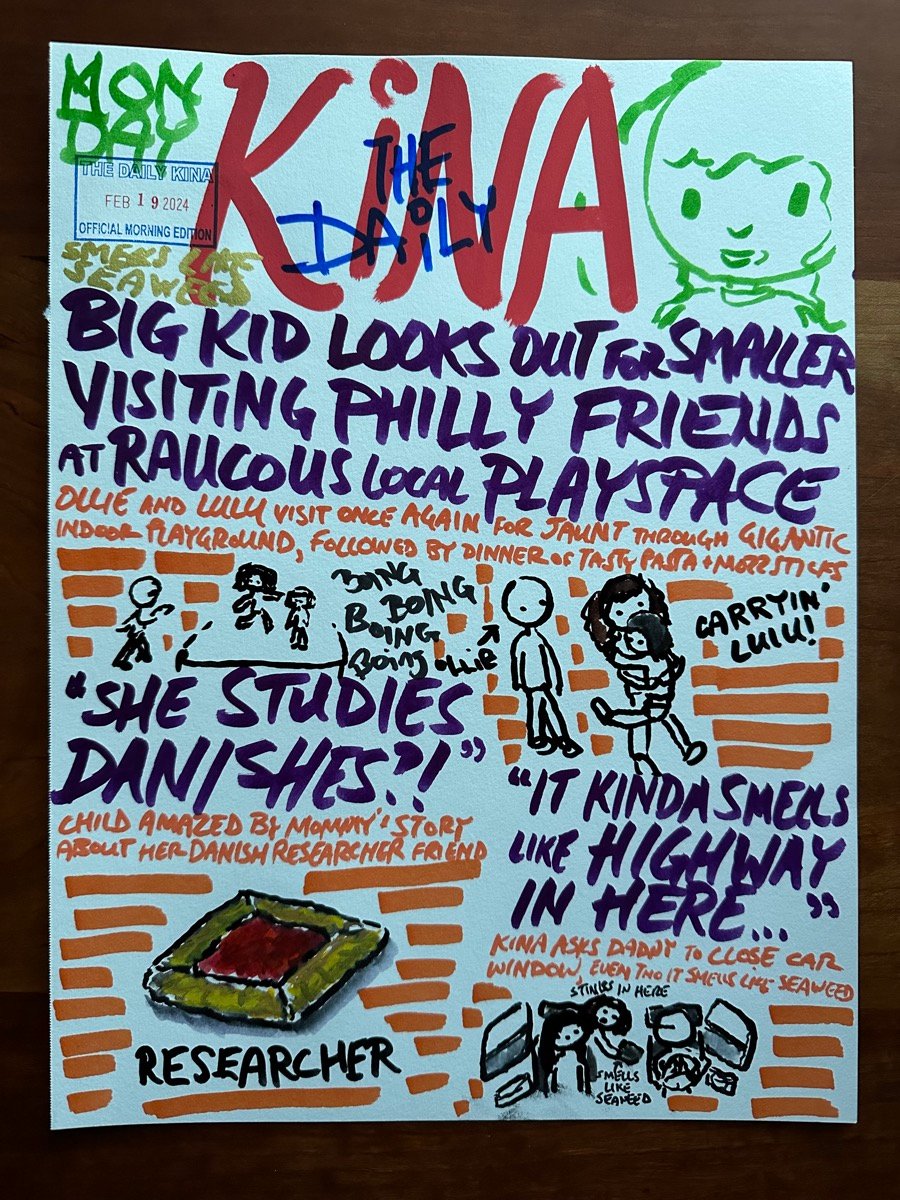 MON
DAY
KiNA
THE
DAILY
THE DAILY KINA
FEB 19 2024
OFFICIAL MORNING EDITION
SMELLS LIKE
SEAWEED
BIG KID LOOKS OUT FOR SMALLER
VISITING PHILLY FRIENDS
AT RAUCOUS LOCAL PLAYSPACE
OLLIE AND LULU VISIT ONCE AGAIN FOR JAUNT THROUGH GIGANTIC
INDOOR PLAYGROUND, FOLLOWED BY DINNER OF TASTY PASTA + MOZZ STICKS
BOING
BOING
BOING
BOING
OLLIE
CARRYIN'
LULU!
"SHE STUDIES
DANISHES?!"
CHILD AMAZED BY MOMMY'S STORY
ABOUT HER DANISH RESEARCHER FRIEND
RESEARCHER
"IT KINDA SMELLS
LIKE HIGHWAY
IN HERE..."
KINA ASKS DADDY TO CLOSE CAR
WINDOW, EVEN THO IT SMELLS LIKE SEAWEED
STINKS IN HERE
SMELLS
LIKE
SEAWEED